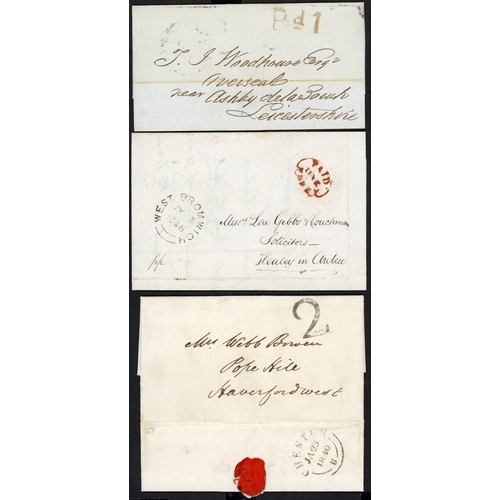 Pd 1
T. J. Woodhouse Esqr
Overseal
near Ashby de la Zouch
Leicestershire
PAID
ONE
WEST BROMWICH
Messrs Lea Gibbs & Couchman
Solicitors
Henley in Arden
pp
2
Mrs Webb Bowen
Pope Hill
Haverfordwest
CHESTER
JA 23
1840
B